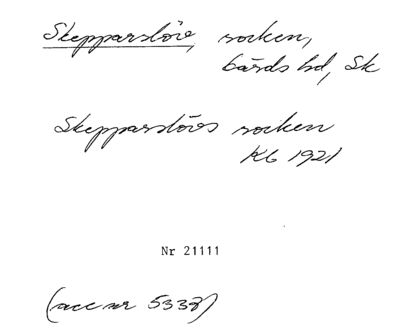 Skepparslöv, socken,
Gärds hd, Sk
Skepparslövs socken
KG 1921
Nr 21111
(acc nr 5338)